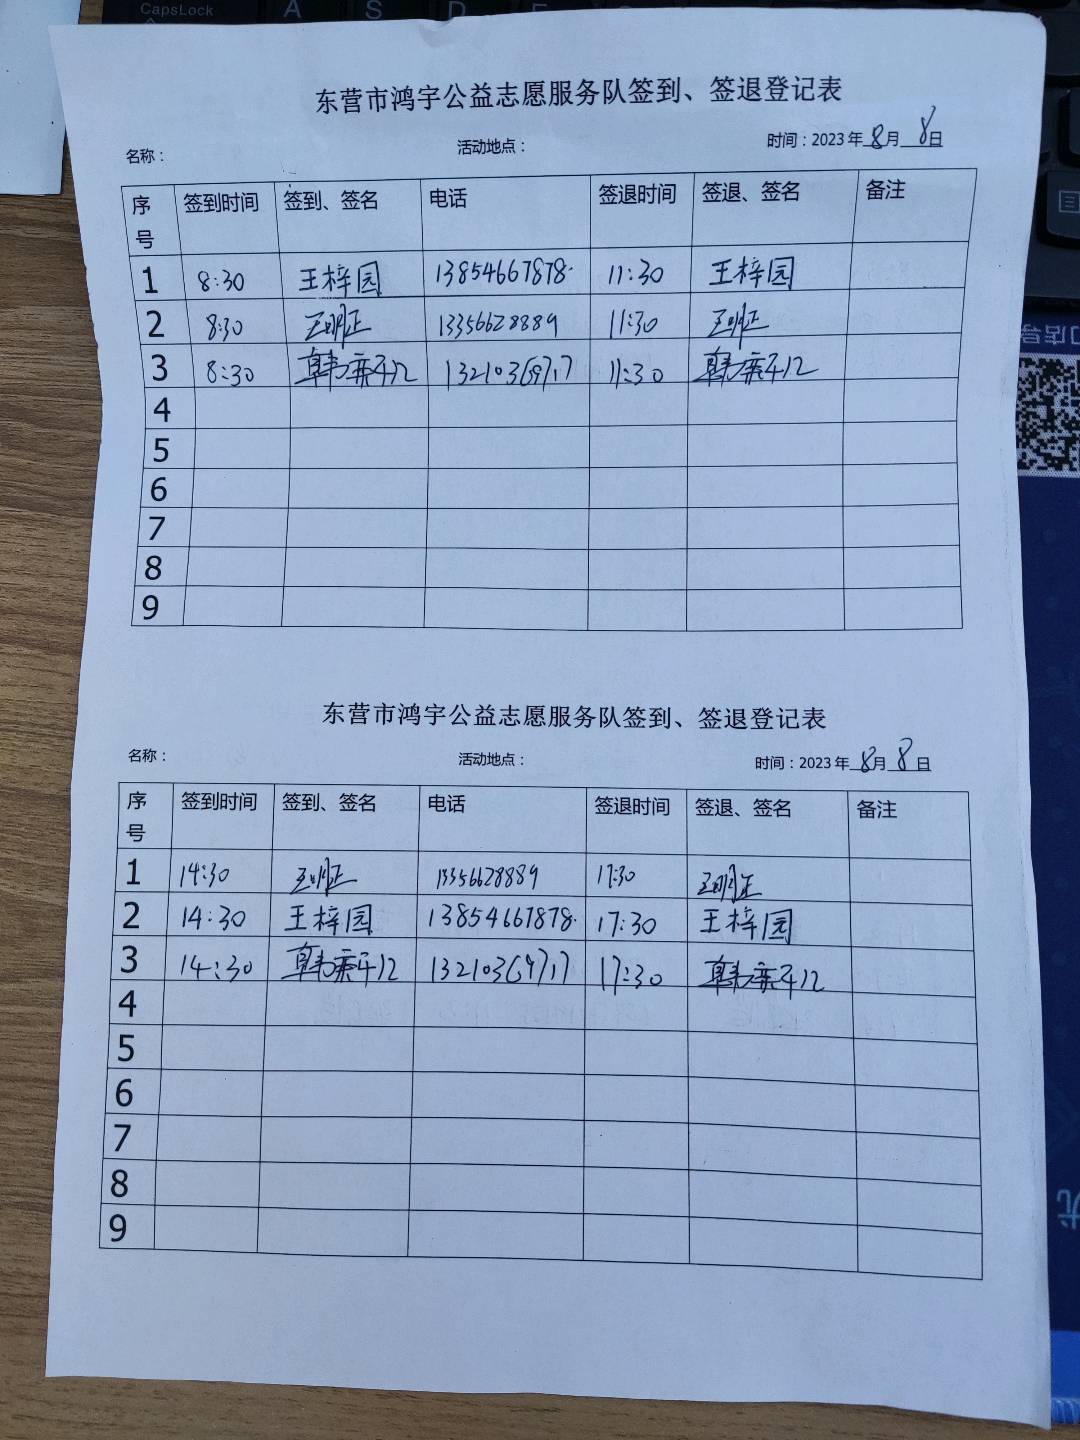 CapsLock A S D
东营市鸿宇公益志愿服务队签到、签退登记表
名称： 活动地点： 时间：2023年8月8日
序号 签到时间 签到、签名 电话 签退时间 签退、签名 备注
1 8:30 王梓园 13854667878 11:30 王梓园
2 8:30 王明正 13356628889 11:30 王明正
3 8:30 韩 11:30 韩
4
5
6
7
8
9
东营市鸿宇公益志愿服务队签到、签退登记表
名称： 活动地点： 时间：2023年8月8日
序号 签到时间 签到、签名 电话 签退时间 签退、签名 备注
1 14:30 王明正 13356628889 17:30 王明正
2 14:30 王梓园 13854667878 17:30 王梓园
3 14:30 韩 17:30 韩
4
5
6
7
8
9